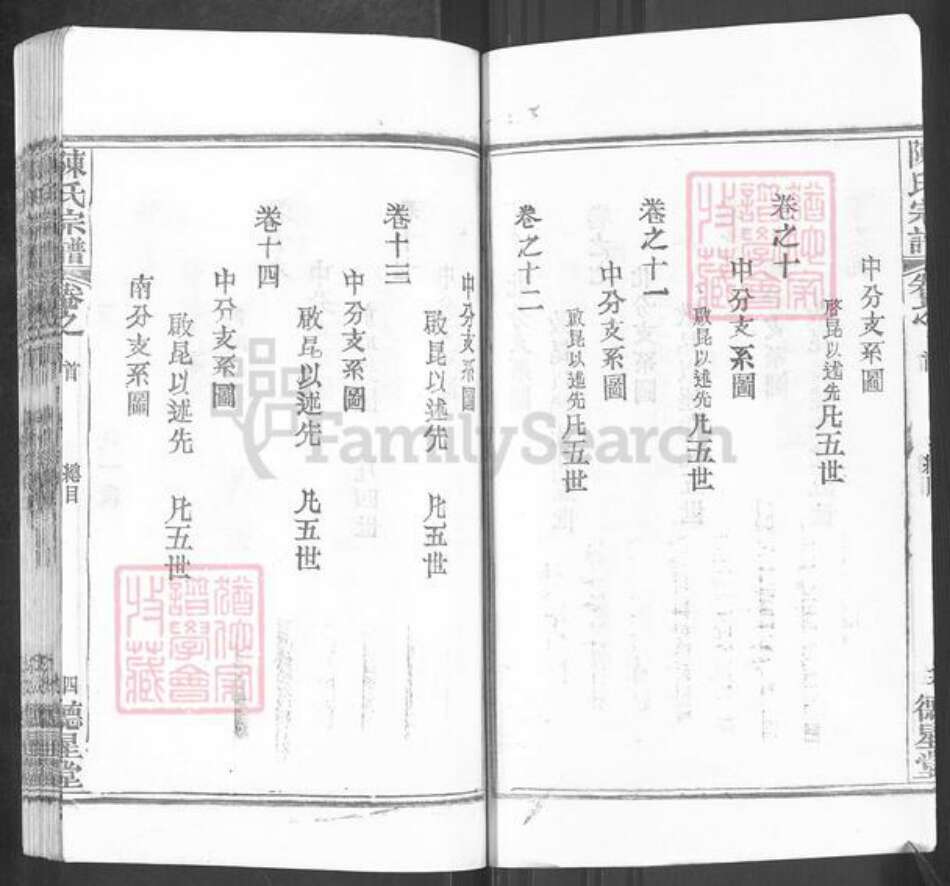 中分支系圖
啓昆以述先凡五世
卷之十
中分支系圖
啟昆以述先凡五世
卷之十一
中分支系圖
啟昆以述先凡五世
卷之十二
中分支系圖
啟昆以述先 凡五世
卷十三
中分支系圖
啟昆以述先 凡五世
卷十四
中分支系圖
啟昆以述先 凡五世
南分支系圖
陳氏宗譜 卷之首 總目 四 德星堂
陳氏宗譜 德星堂
譜學會
收藏
譜學會
收藏
FamilySearch